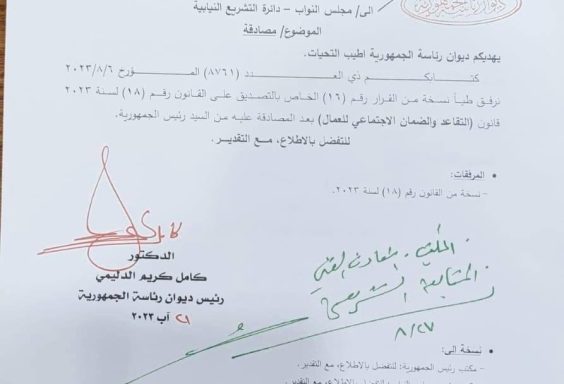 ديوان رئاسة الجمهورية
الى/ مجلس النواب – دائرة التشريع النيابية
الموضوع/ مصادقة
يهديكم ديوان رئاسة الجمهورية اطيب التحيات.
كتابكم ذي العدد (٨٧٦١) المؤرخ ٢٠٢٣/٨/٦
نرفق طياً نسخة من القرار رقم (١٦) الخاص بالتصديق على القانون رقم (١٨) لسنة ٢٠٢٣
قانون (التقاعد والضمان الاجتماعي للعمال) بعد المصادقة عليه من السيد رئيس الجمهورية.
للتفضل بالاطلاع، مع التقدير.
• المرفقات:
- نسخة من القانون رقم (١٨) لسنة ٢٠٢٣.
الدكتور
كامل كريم الدليمي
رئيس ديوان رئاسة الجمهورية
٢١ آب ٢٠٢٣
٨/٢٧
• نسخة الى:
- مكتب رئيس الجمهورية: للتفضل بالاطلاع، مع التقدير.
للتفضل بالاطلاع، مع التقدير.